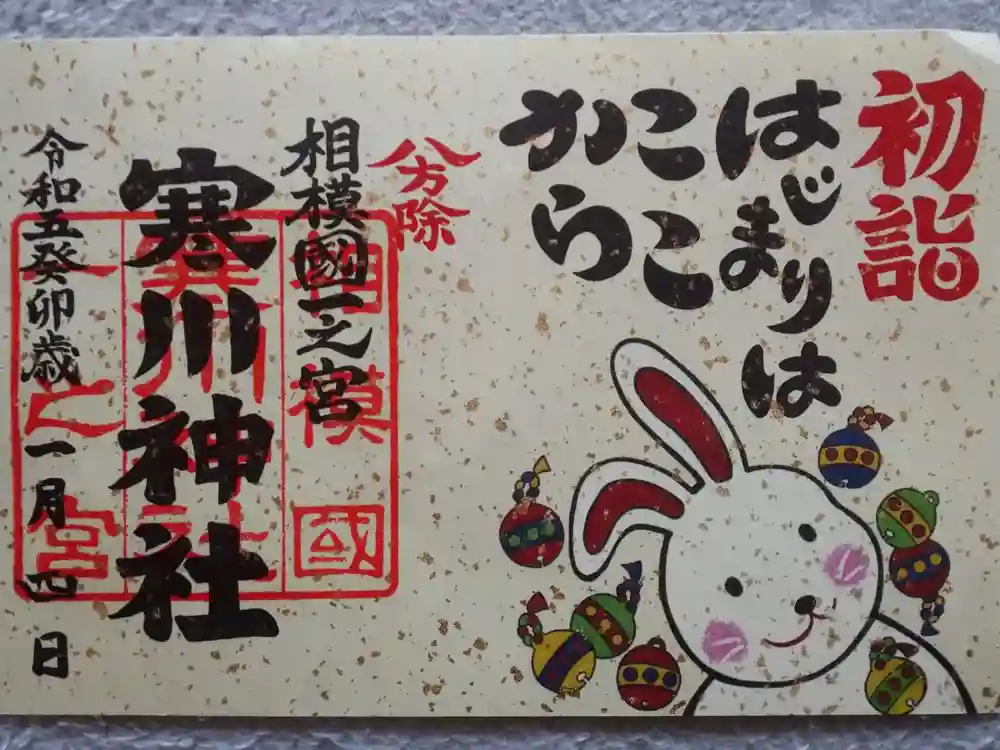 初詣
はじまりは
ここ
から
八方除
相模國一之宮
寒川神社
令和五癸卯歳一月四日
相模國
寒川神社
一之宮